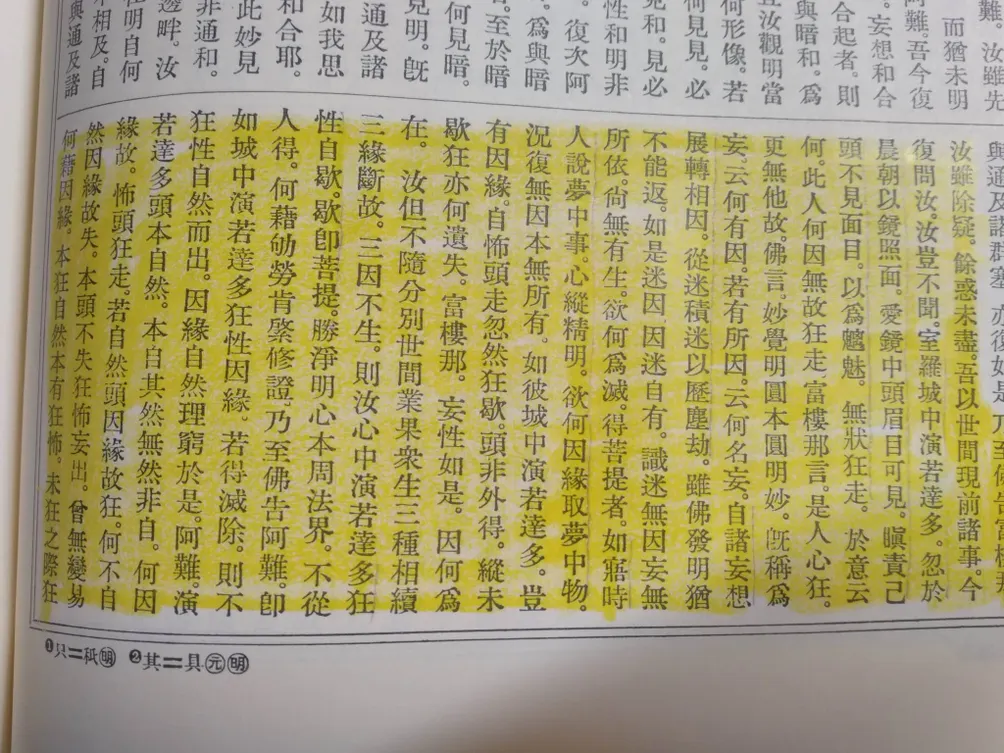 難。汝雖先
而猶未明
難。吾今復
。妄想和合
合起者。則
與暗和。爲
且汝觀明當
何形像。若
何見見。必
見和。見必
性和明非
。復次阿
。爲與暗
。至於暗
何見暗。
見明。旣
通及諸
如我思
和合耶。
此妙見
非通和。
邊畔。汝
明自何
不相及。自
與通及諸
與通及諸群塞。亦復如是
汝雖除疑。餘惑未盡。吾以世間現前諸事。今
復問汝。汝豈不聞。室羅城中演若達多。忽於
晨朝以鏡照面。愛鏡中頭眉目可見。瞋責己
頭不見面目。以爲魑魅。無狀狂走。於意云
何。此人何因無故狂走富樓那言。是人心狂。
更無他故。佛言。妙覺明圓本圓明妙。旣稱爲
妄。云何有因。若有所因。云何名妄。自諸妄想
展轉相因。從迷積迷以歷塵劫。雖佛發明猶
不能返。如是迷因。因迷自有。識迷無因妄無
所依。尙無有生。欲何爲滅。得菩提者。如寤時
人說夢中事。心縱精明。欲何因緣取夢中物。
況復無因本無所有。如彼城中演若達多。豈
有因緣。自怖頭走忽然狂歇。頭非外得。縱未
歇狂亦何遺失。富樓那。妄性如是。因何爲
在。汝但不隨分別世間業果衆生三種相續
三緣斷故。三因不生。則汝心中演若達多狂
性自歇。歇卽菩提。勝淨明心本周法界。不從
人得。何藉劬勞肯綮修證。乃至佛告阿難。卽
如城中演若達多狂性因緣。若得滅除。則不
狂性自然而出。因緣自然理窮於是。阿難。演
若達多頭本自然。本自其然無然非自。何因
緣故。怖頭狂走。若自然頭因緣故狂。何不自
然因緣故失。本頭不失狂怖妄出。曾無變易
何藉因緣。本狂自然本有狂怖。未狂之際狂
❶只=秖㊔明 ❷其=具元明